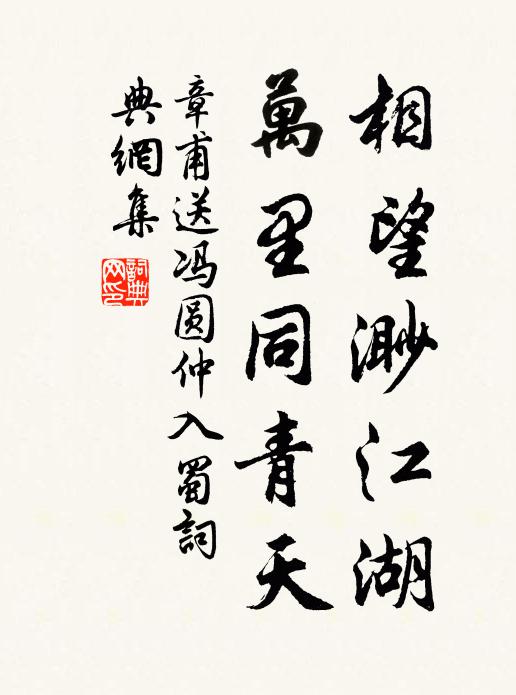 相望渺江湖
萬里同青天
章甫送冯圆仲入蜀詞
典網集
詞典网印